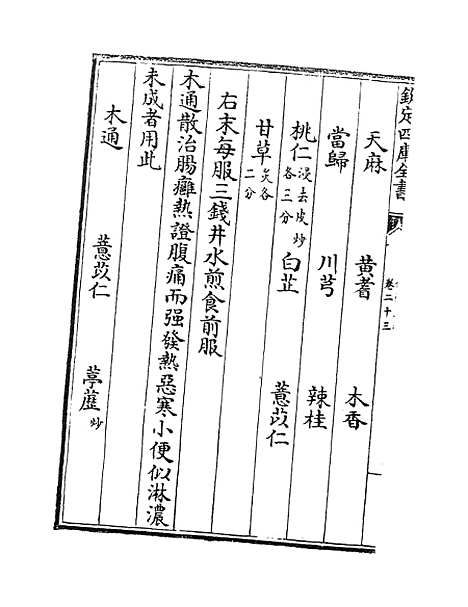 欽定四庫全書
卷二十三
天麻 黄蓍 木香
當歸 川芎 辣桂
桃仁浸去皮炒各三分 白芷 薏苡仁
甘草炙各二分
右末每服三錢井水煎食前服
木通散治腸癰熱證腹痛而强發熱惡寒小便似淋濃
未成者用此
木通 薏苡仁 葶藶炒